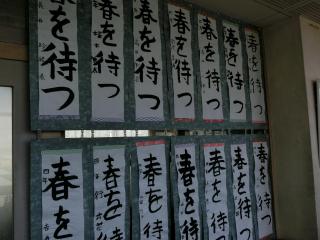 春を待つ
春を待つ
春を待つ
春を待つ
春を待つ
春を待つ
春を待つ
春を
春を待
春を待
春を待つ
春を待つ
春を待つ
春を待つ